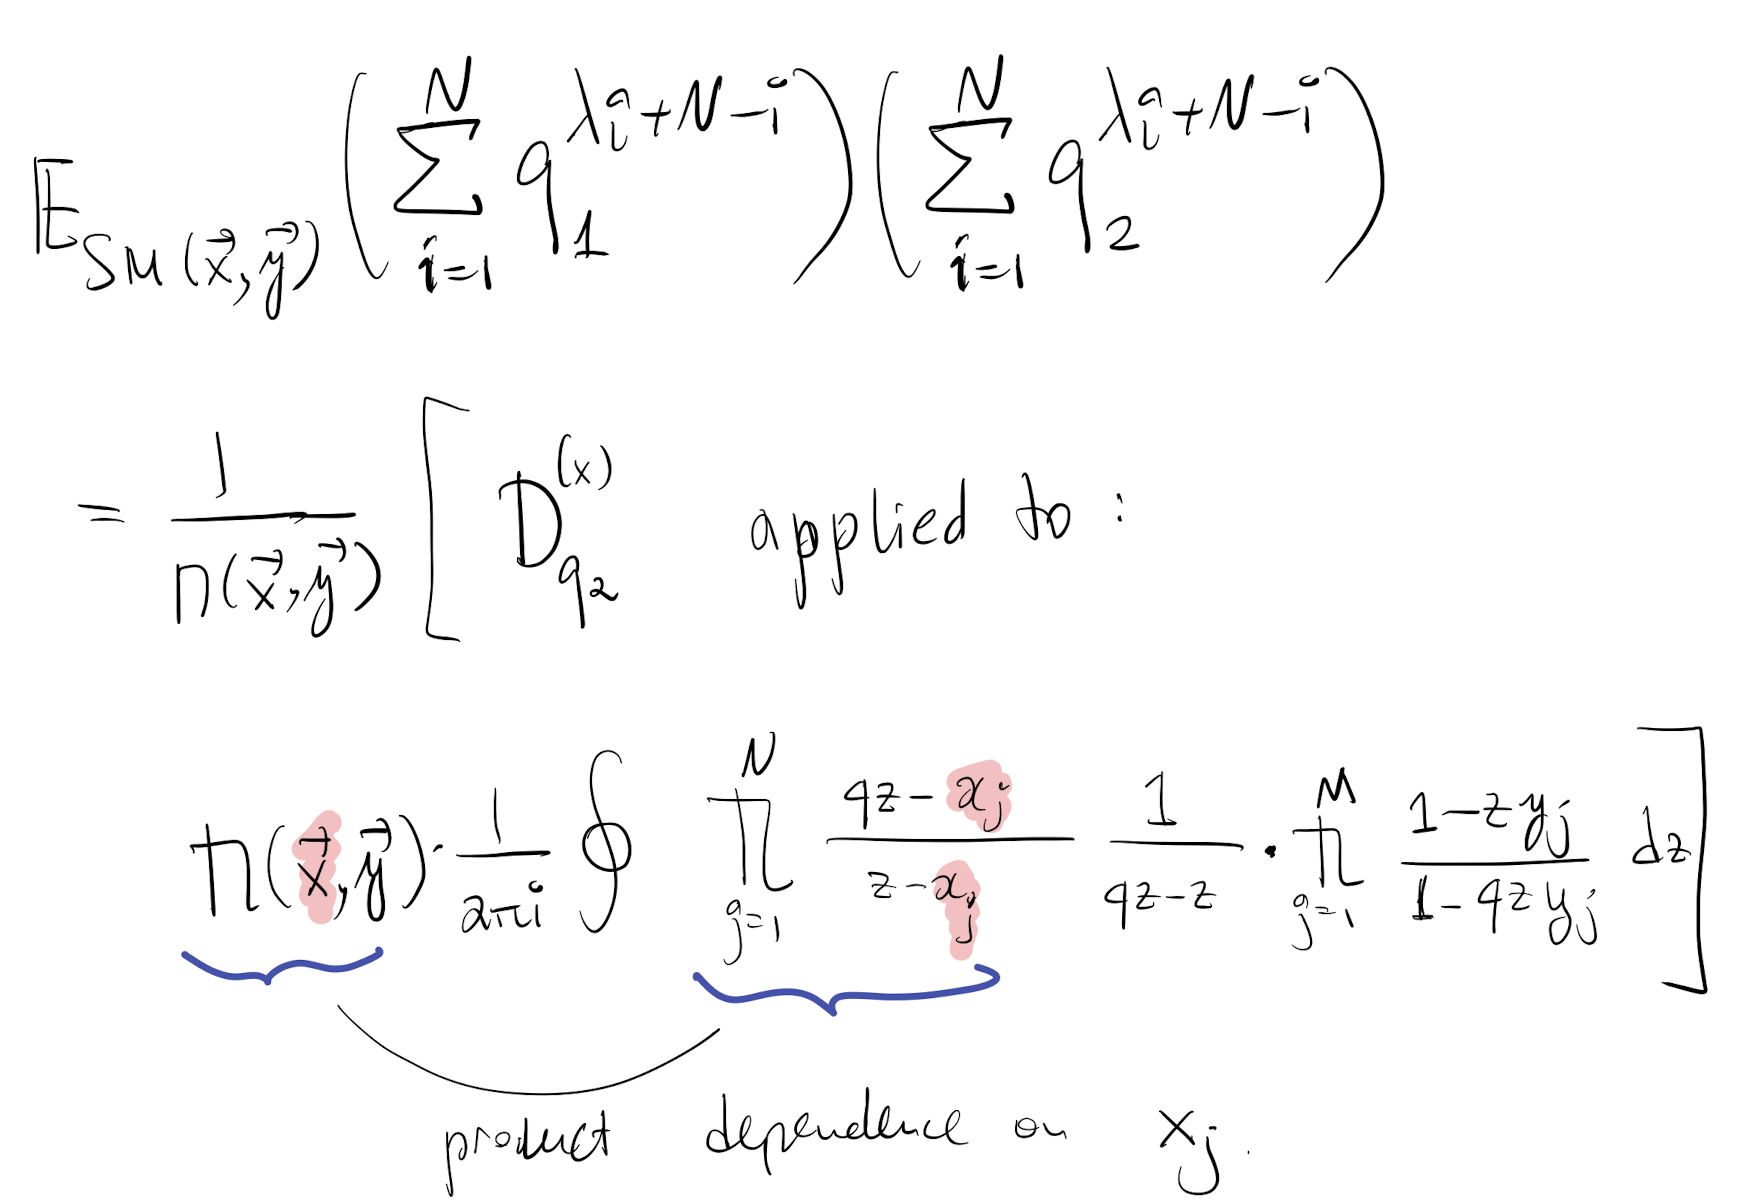 𝔼_{SM(\vec{x},\vec{y})} \left( \sum_{i=1}^{N} q_1^{λ_i^a+N-i} \right) \left( \sum_{i=1}^{N} q_2^{λ_i^a+N-i} \right)
= \frac{1}{Π(\vec{x},\vec{y})} [ D_{q_2}^{(x)} applied to :
Π(\vec{x},\vec{y}) · \frac{1}{2πi} ∮ \prod_{j=1}^{N} \frac{qz-x_j}{z-x_j} \frac{1}{qz-z} · \prod_{j=1}^{M} \frac{1-zy_j}{1-qzy_j} dz ]
product dependence on x_j.